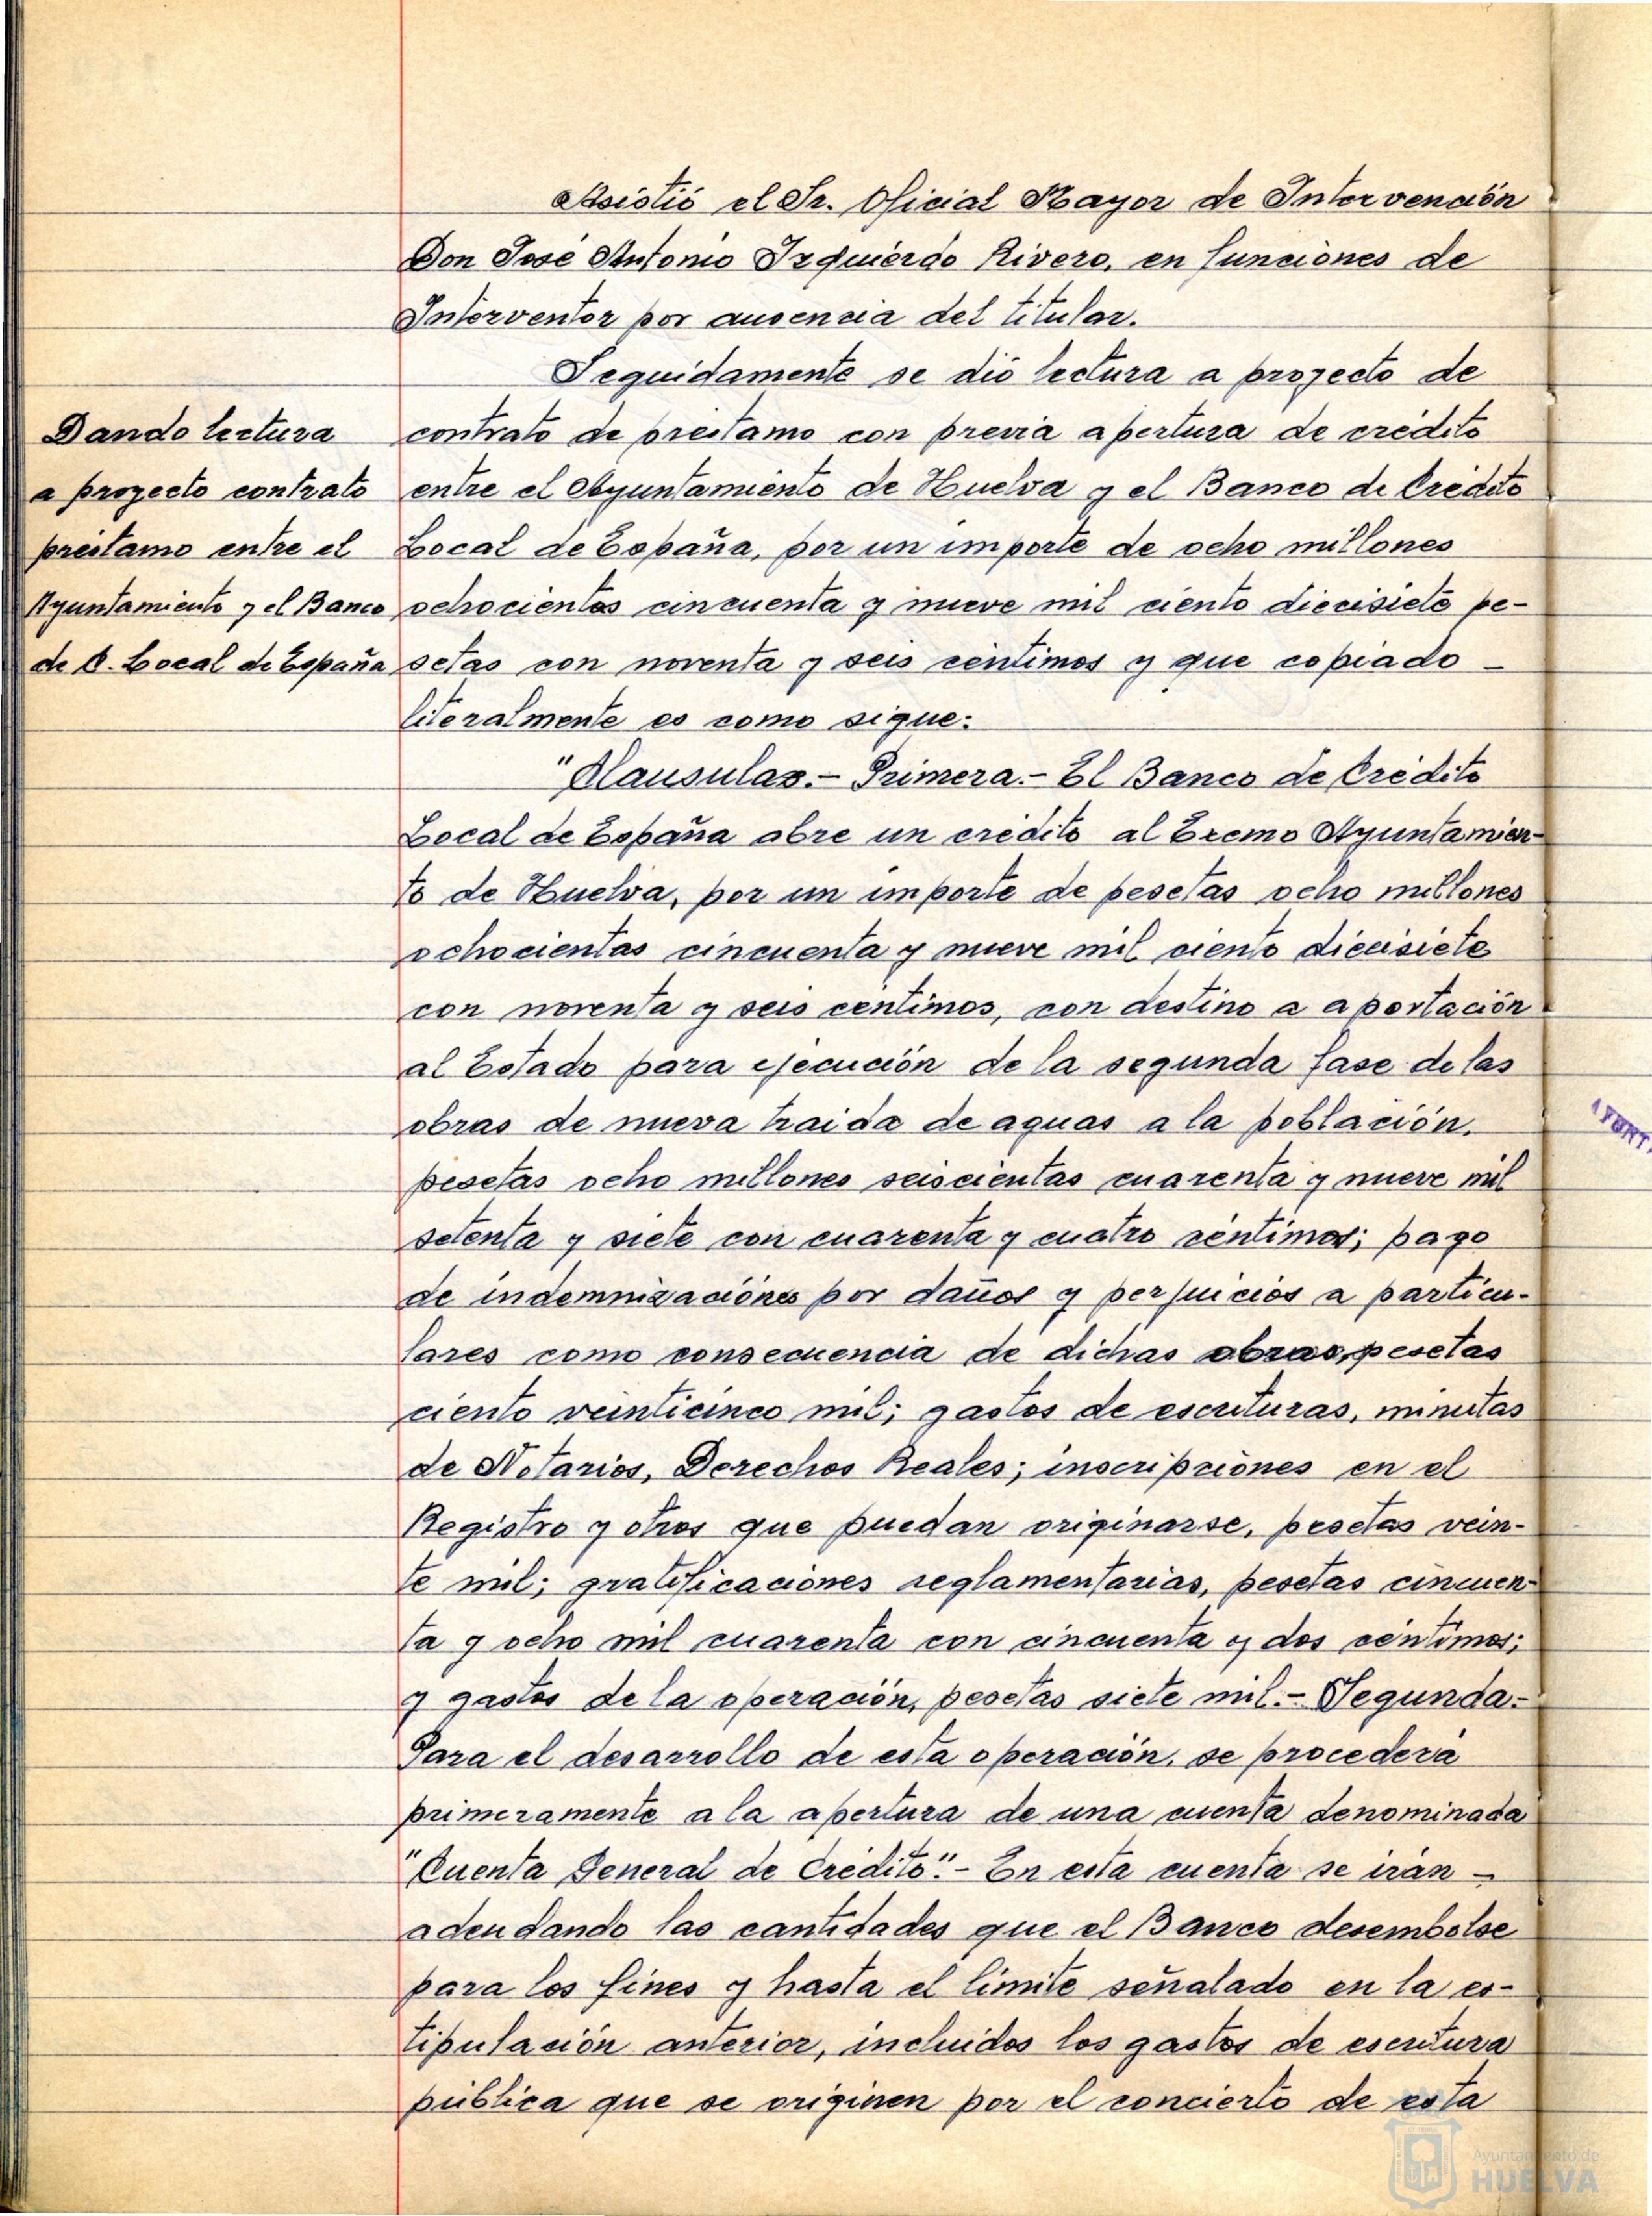 Asistió el Sr. Oficial Mayor de Intervención
Don José Antonio Izquierdo Rivero, en funciones de
Interventor por ausencia del titular.
Seguidamente se dió lectura a proyecto de
contrato de prestamo con previa apertura de crédito
entre el Ayuntamiento de Huelva y el Banco de Crédito
Local de España, por un importe de ocho millones
ochocientas cincuenta y nueve mil ciento diecisiete pe-
setas con noventa y seis centimos y que copiado -
literalmente es como sigue:
Dando lectura
a proyecto contrato
prestamo entre el
Ayuntamiento y el Banco
de C. Local de España
"Clausulas.- Primera.- El Banco de Crédito
Local de España abre un crédito al Excmo Ayuntamien-
to de Huelva, por un importe de pesetas ocho millones
ochocientas cincuenta y nueve mil ciento diecisiete
con noventa y seis centimos, con destino a aportación
al Estado para ejecución de la segunda fase de las
obras de nueva traida de aguas a la población,
pesetas ocho millones seiscientas cuarenta y nueve mil
setenta y siete con cuarenta y cuatro céntimos; pago
de indemnizaciónes por daños y perjuicios a particu-
lares como consecuencia de dichas obras, pesetas
ciento veinticinco mil; gastos de escrituras, minutas
de Notarios, Derechos Reales; inscripciónes en el
Registro y otros que puedan originarse, pesetas vein-
te mil; gratificaciones reglamentarias, pesetas cincuen-
ta y ocho mil cuarenta con cincuenta y dos céntimos;
y gastos de la operación, pesetas siete mil.- Segunda-
Para el desarrollo de esta operación, se procederá
primeramente a la apertura de una cuenta denominada
"Cuenta General de Crédito".- En esta cuenta se irán -
adeudando las cantidades que el Banco desembolse
para los fines y hasta el límite señalado en la es-
tipulación anterior, incluidos los gastos de escritura
pública que se originen por el concierto de esta
Ayuntamiento de
HUELVA